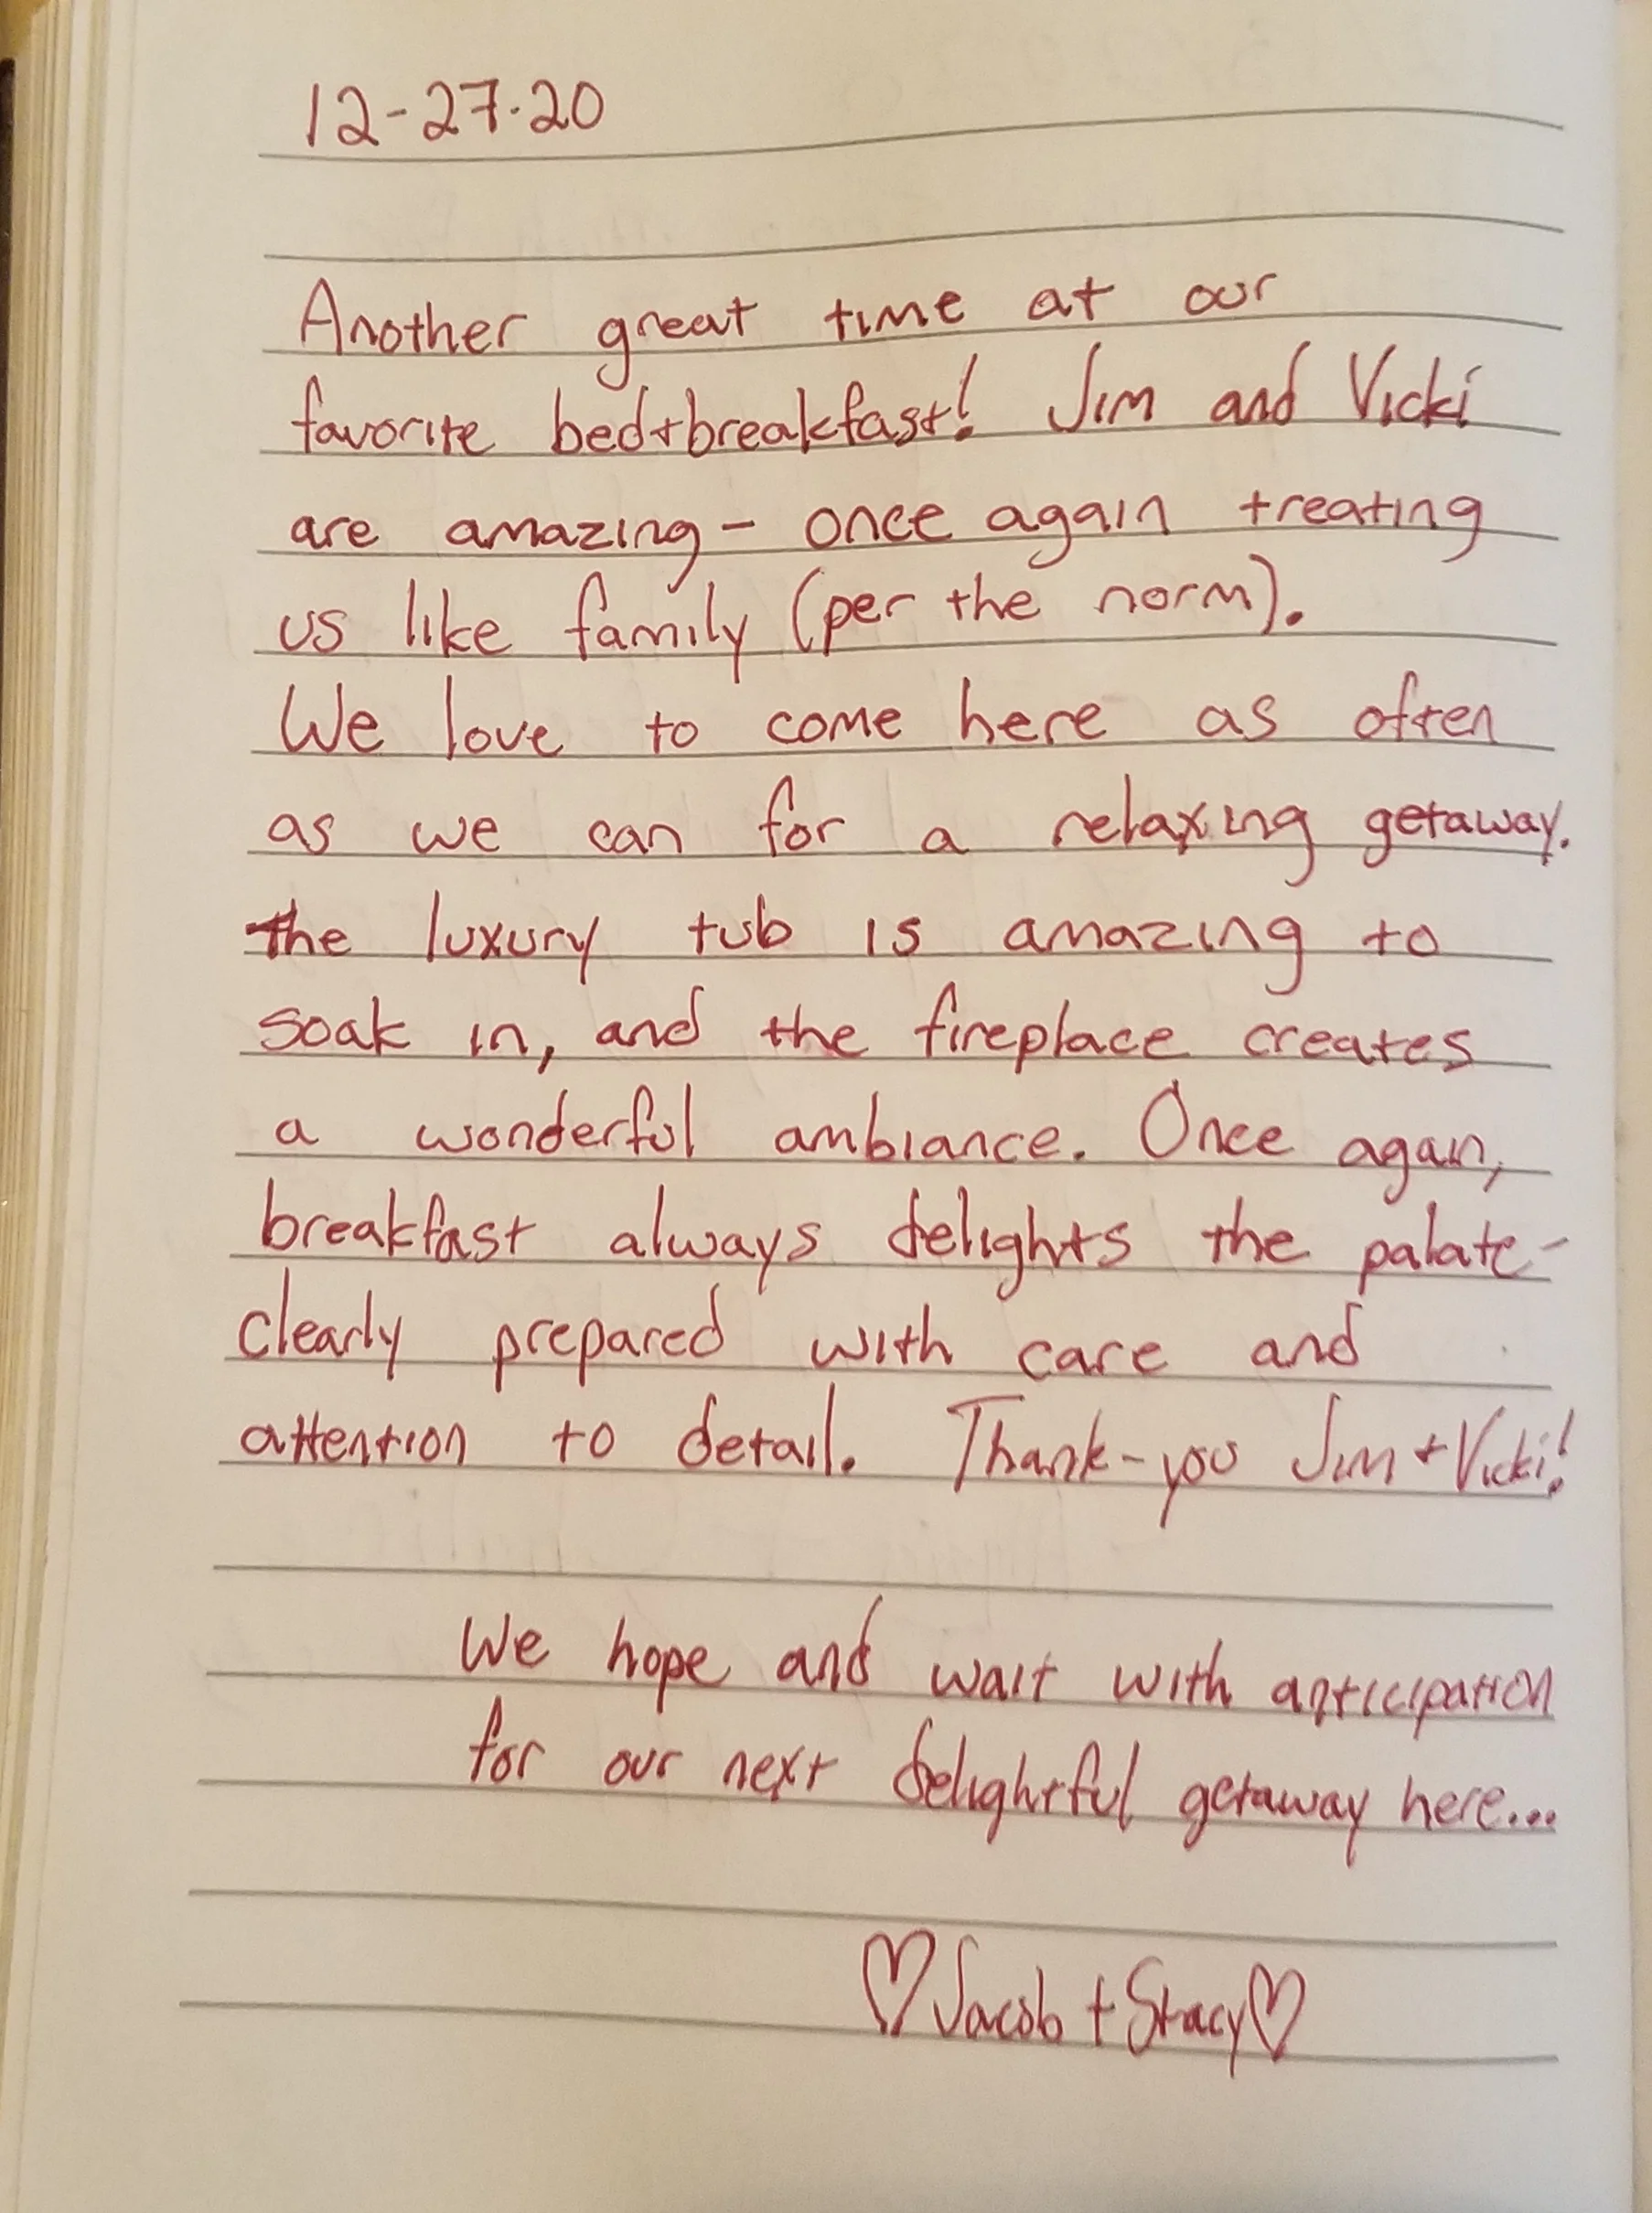 12-27-20
Another great time at our
favorite bed+breakfast! Jim and Vicki
are amazing - once again treating
us like family (per the norm).
We love to come here as often
as we can for a relaxing getaway.
the luxury tub is amazing to
soak in, and the fireplace creates
a wonderful ambiance. Once again,
breakfast always delights the palate -
clearly prepared with care and
attention to detail. Thank-you Jim + Vicki!
We hope and wait with anticipation
for our next delightful getaway here...
♡Jacob + Stacy♡